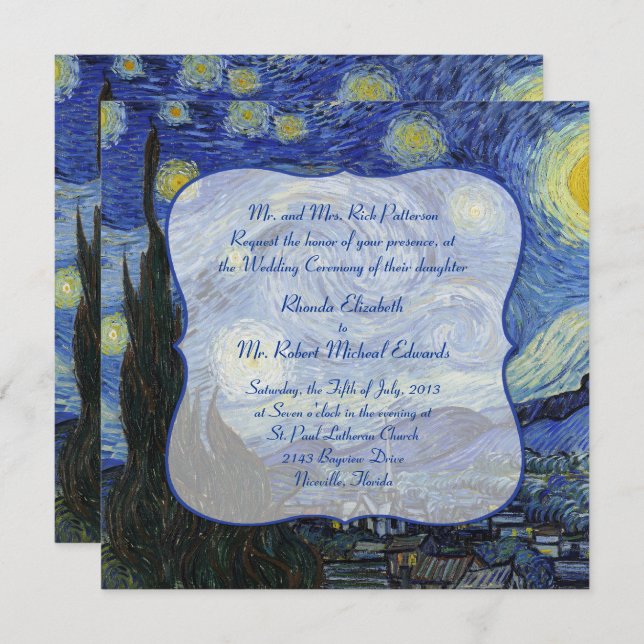 Mr. and Mrs. Rick Patterson
Request the honor of your presence, at
the Wedding Ceremony of their daughter
Rhonda Elizabeth
to
Mr. Robert Micheal Edwards
Saturday, the Fifth of July, 2013
at Seven o'clock in the evening at
St. Paul Lutheran Church
2143 Bayview Drive
Niceville, Florida